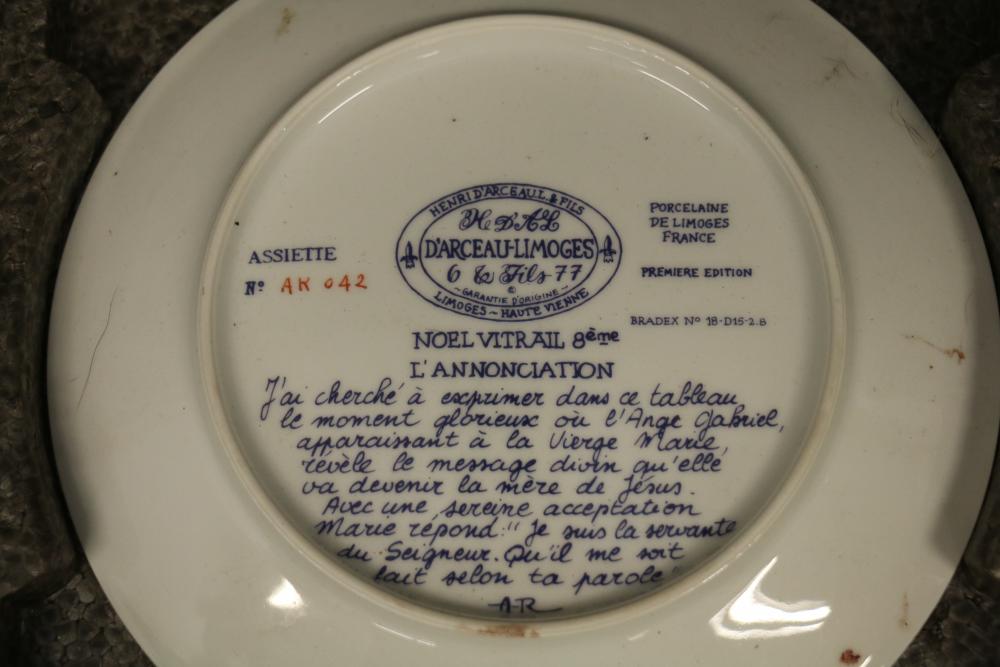 HENRI D'ARCEAU L. & FILS
H. D'A L
D'ARCEAU-LIMOGES
6 & Fils 77
©
~GARANTIE D'ORIGINE~
LIMOGES ~ HAUTE VIENNE
ASSIETTE
Nº AK 042
PORCELAINE
DE LIMOGES
FRANCE
PREMIERE EDITION
BRADEX Nº 18-D15-2.8
NOEL VITRAIL 8ème
L'ANNONCIATION
J'ai cherché à exprimer dans ce tableau
le moment glorieux où l'Ange Gabriel,
apparaissant à la Vierge Marie,
révèle le message divin qu'elle
va devenir la mère de Jésus.
Avec une sereine acceptation
Marie répond "Je suis la servante
du Seigneur. Qu'il me soit
fait selon ta parole"
AR